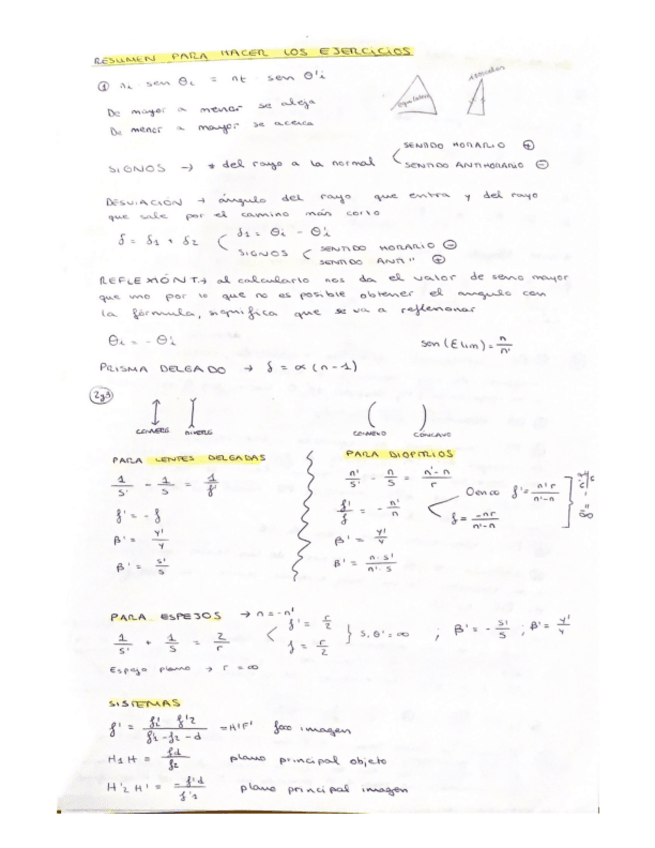 RESUMEN PARA HACER LOS EJERCICIOS
① ni sen θi = nt sen θ'i
De mayor a menor se aleja
De menor a mayor se acerca
SIGNOS → * del rayo a la normal
SENTIDO HORARIO ⊕
SENTIDO ANTIHORARIO ⊖
DESVIACIÓN → ángulo del rayo que entra y del rayo
que sale por el camino más corto
δ = δ1 + δ2
δ1 = θi - θ'i
SIGNOS
SENTIDO HORARIO ⊖
SENTIDO ANTI" ⊕
REFLEXIÓN T → al calcularlo nos da el valor de seno mayor
que uno por lo que no es posible obtener el angulo con
la fórmula, significa que se va a reflexionar
θi = - θ'i
sen (Elim) = n/n'
PRISMA DELGADO → δ = α (n - 1)
2y3
CONVERG DIVERG
CONVEXO CONCAVO
PARA LENTES DELGADAS
1/s' - 1/s = 1/f'
f' = - f
β' = y'/y
β' = s'/s
PARA DIOPTRIOS
n'/s' - n/s = n'-n/r
f'/f = - n'/n
f' = n'r/n'-n
f = -nr/n'-n
β' = y'/y
β' = n·s'/n'·s
PARA ESPEJOS → n = -n'
1/s' + 1/s = 2/r
f' = r/2
f = r/2
; β' = - s'/s ; β' = y'/y
Espejo plano → r = ∞
SISTEMAS
f' = f'1 · f'2 / f'1 - f2 - d = H'F' foco imagen
H1H = fd/f2 plano principal objeto
H'2H' = -f'd/f'1 plano principal imagen